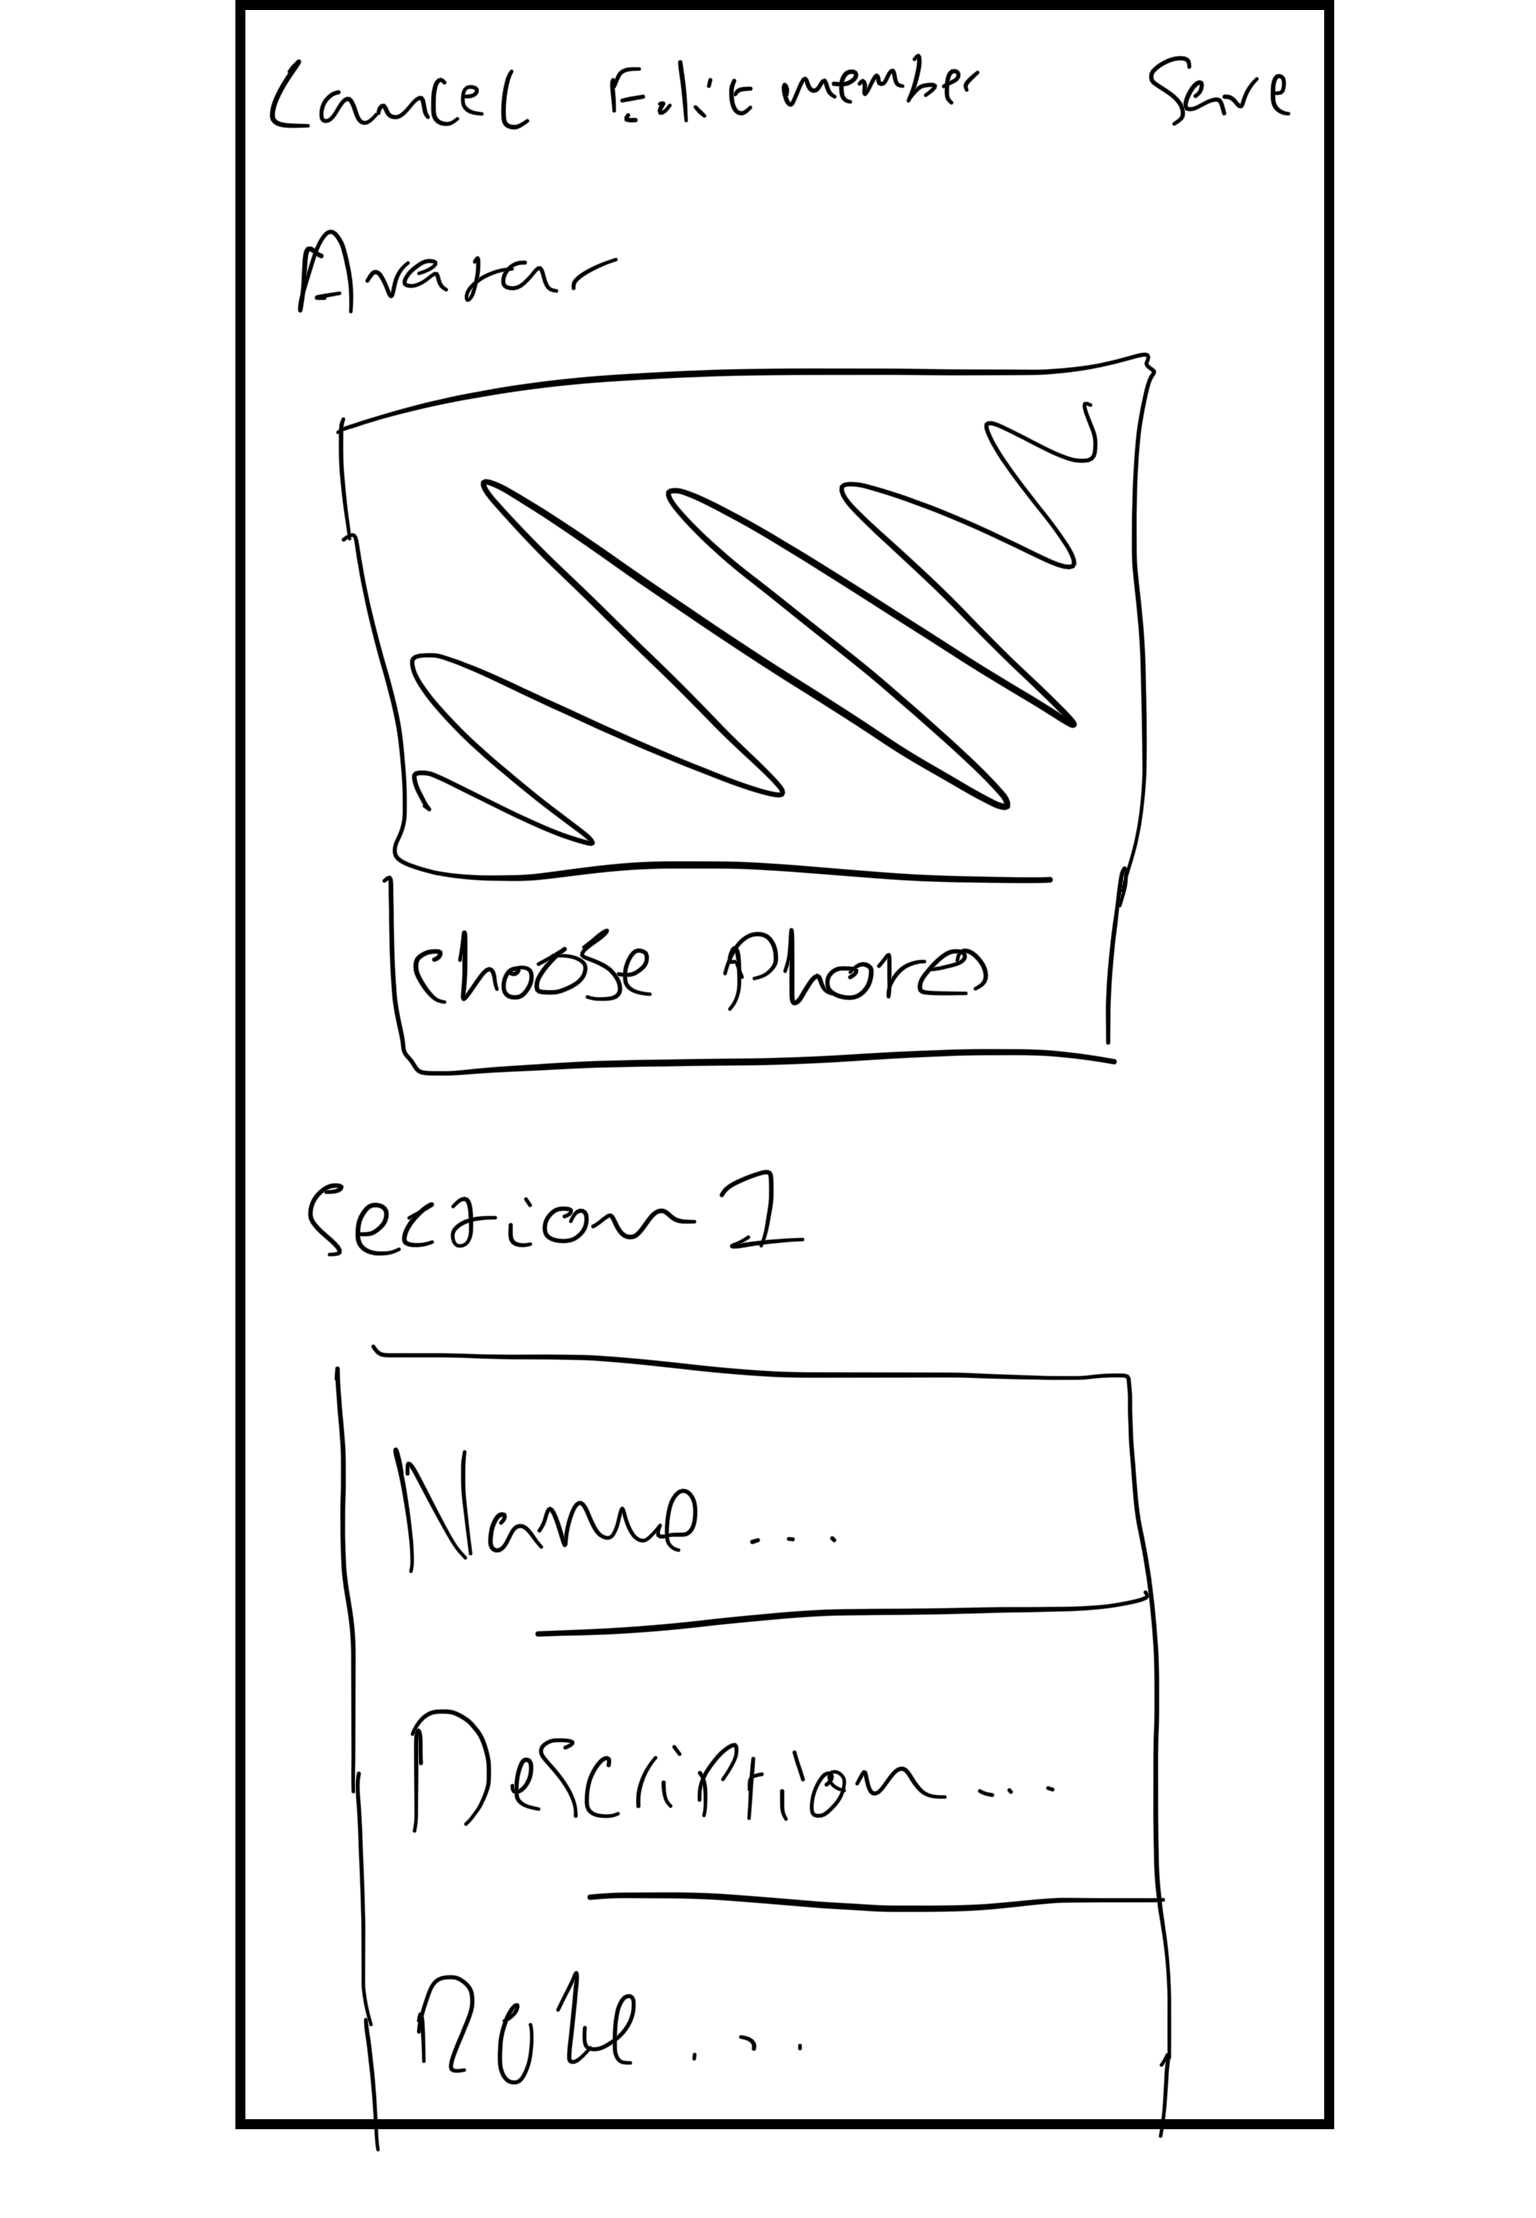 Cancel Edit member Save
Avatar
Choose Photo
Section 1
Name ...
Description ...
Role ...